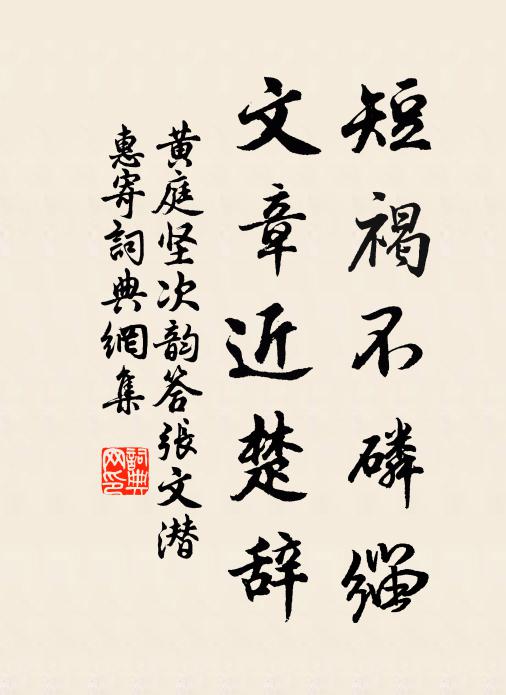 短褐不磷缁
文章近楚辞
黄庭坚次韵答张文潜
惠寄词典網集
詞典
网印